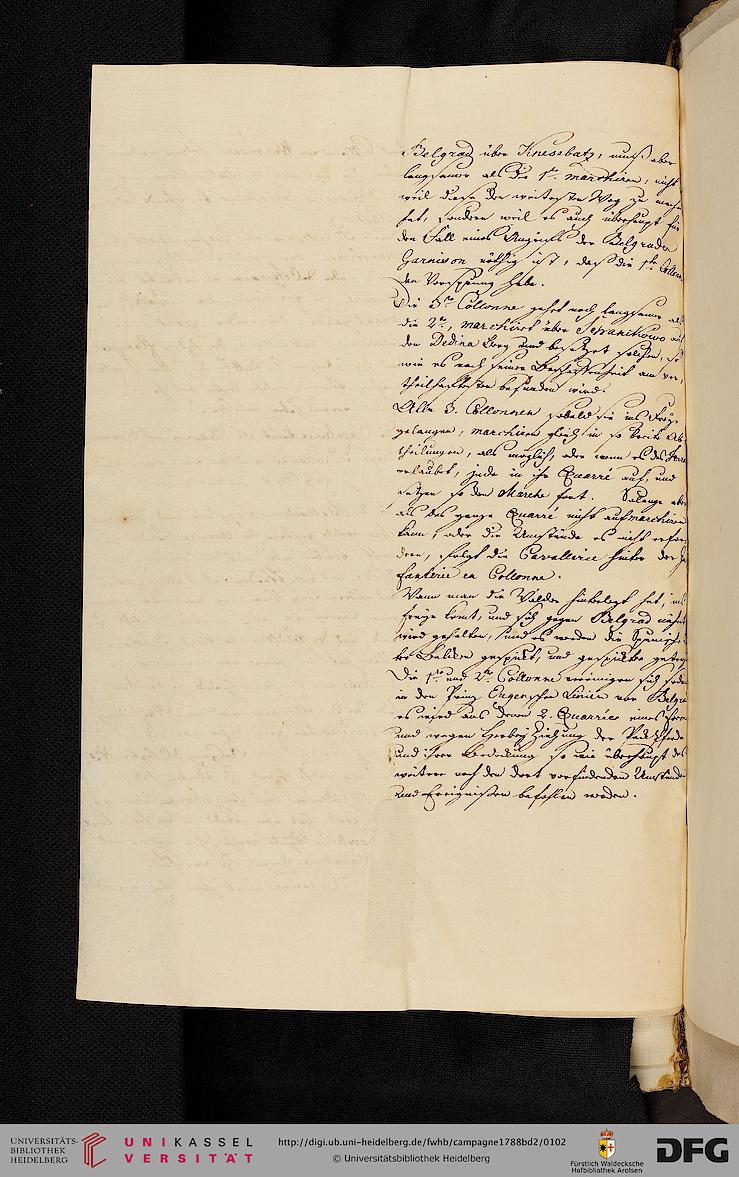 Belgrad über Knesebatz, muß aber
langsamer als die 1te marschiren, nicht
weil diese den weitesten Weg zu mache
hat, sondern weil es auch überhaupt für
den Fall eines Angriffs der Belgrader
Garnison nöthig ist, daß die 1te Collon
den Vorsprung habe.
Die 3te Collonne geht noch langsamer als
die 2te, marchirt über auf
den Dedina Berg und besetzet solchen, so
wie es nach seiner Beschaffenheit am vor¸
theilhaftesten befunden wird.
Alle 3. Collonnen sobald sie ins Freye
gelangen, marchiren gleich in so breite Ab¸
theilungen, als möglich, oder wenn es das
erlaubet, jede in ihr Quarré auf, und
setzen so den Marche fort. Solange aber
als das ganze Quarré nicht aufmarchiren
kann, oder die Umstände es nicht erfor
dern, folgt die Cavallerie hinter der In
fanterie en Collonne.
Wann man die Wälder hinterlegt hat, ins
freye komt, und sich gegen Belgrad nähert
wird gehalten, und es werden die Spanisch
Die 1te und 2te Collonne vereinigen sich sodan
in den Prinz Eugenschen Linien vor Belgra
es wird aus denen 2. Quarrées eines form
und wegen Herbey Ziehung der Packpferde
und ihrer Bedeckung so wie überhaupt das
weitere nach den dort vorfindenden Umstände
und Ereignißen befohlen werden.
UNIVERSITÄTS-
BIBLIOTHEK
HEIDELBERG
UNIKASSEL
VERSITÄT
http://digi.ub.uni-heidelberg.de/fwhb/campagne1788bd2/0102
© Universitätsbibliothek Heidelberg
Fürstlich Waldecksche
Hofbibliothek Arolsen
DFG